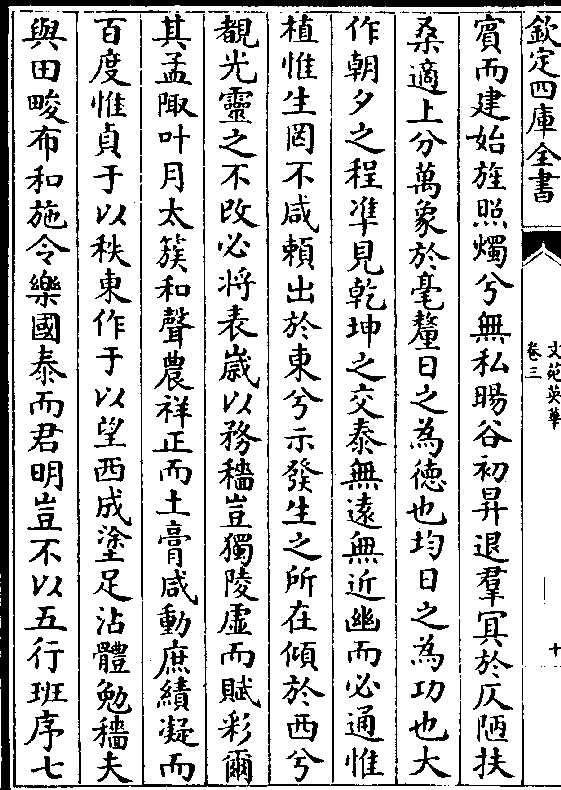 欽定四庫全書
文苑英華
卷三
十
賓而建始旌照燭兮無私暘谷初昇退羣冥於仄陋扶
桑適上分萬象於毫釐日之為徳也均日之為功也大
作朝夕之程凖見乾坤之交泰無逺無近幽而必通惟
植惟生罔不咸頼出於東兮示發生之所在傾於西兮
覩光靈之不改必将表嵗以務穡豈獨陵虚而賦彩爾
其孟陬叶月太簇和聲農祥正而土膏咸動庶績凝而
百度惟貞于以秩東作于以望西成塗足沾體勉穡夫
與田畯布和施令樂國泰而君明豈不以五行班序七